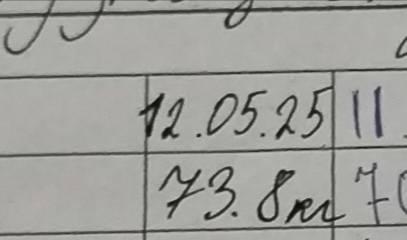 12.05.25 11.
73.8кг 7